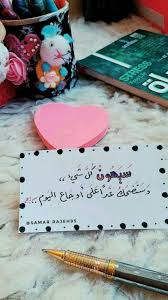 STRESS
سَيَهونُ كُلّ شيءٍ ،،
وسَتَضحَكُ غَداً على أوجاعِ اليوم
@SAMAR RAJEH95